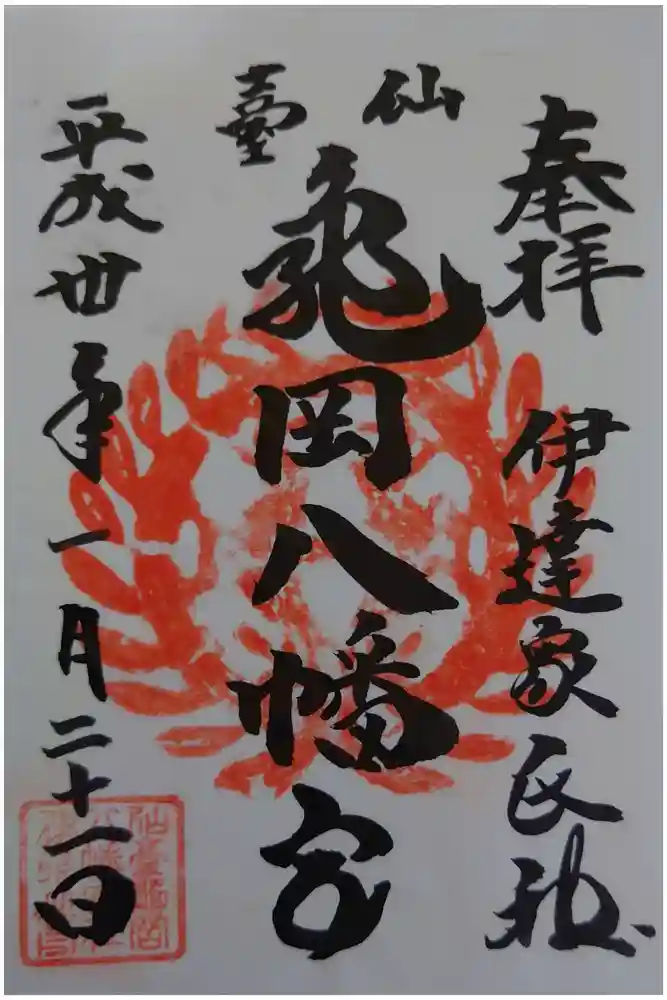 奉拝 伊達家氏神
仙臺
亀岡八幡宮
平成卅年一月二十一日